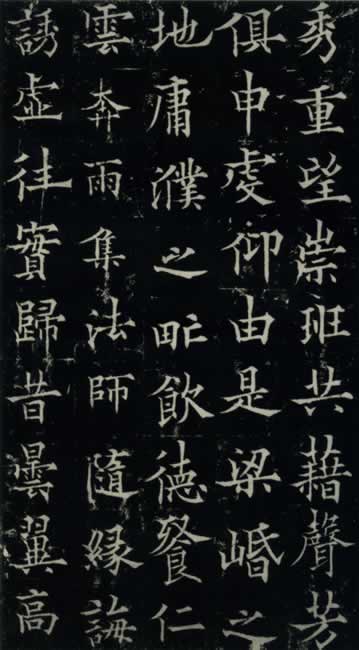 秀重望崇班共藉聲芳
俱申虔仰由是梁崏之
地庸濮之甿飲德餐仁
雲奔雨集法師隨緣誨
誘虛往實歸昔曇翼高